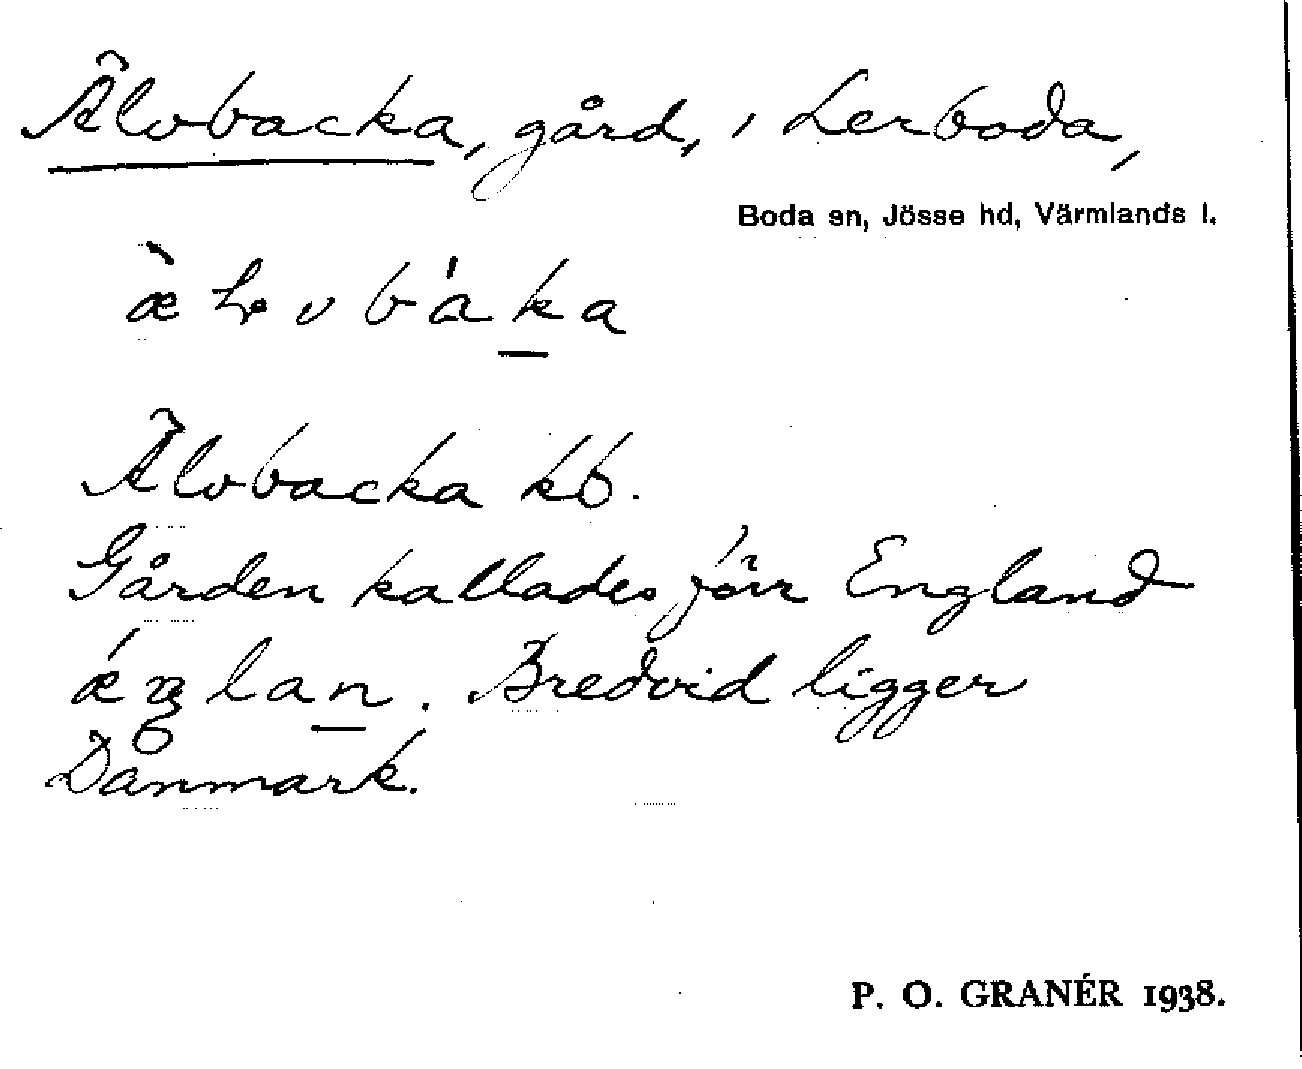 Älvbacka, gård, i Lerboda,
Boda sn, Jösse hd, Värmlands l.
æ̀ Ł v b á k̲ a
Älvbacka kb.
Gården kallades förr England
ǽŋlan̲. Bredvid ligger
Danmark.
P. O. GRANÉR 1938.